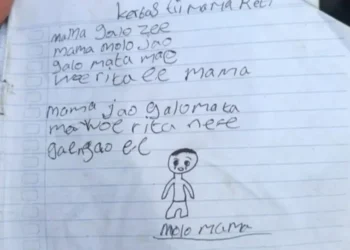 kertas ii mama Reti
mama galo zee
mama molo jao
galo mata mae
woe rita ee mama
mama jao galo mata
mawoe rita nere
gaengao ee
molo mama